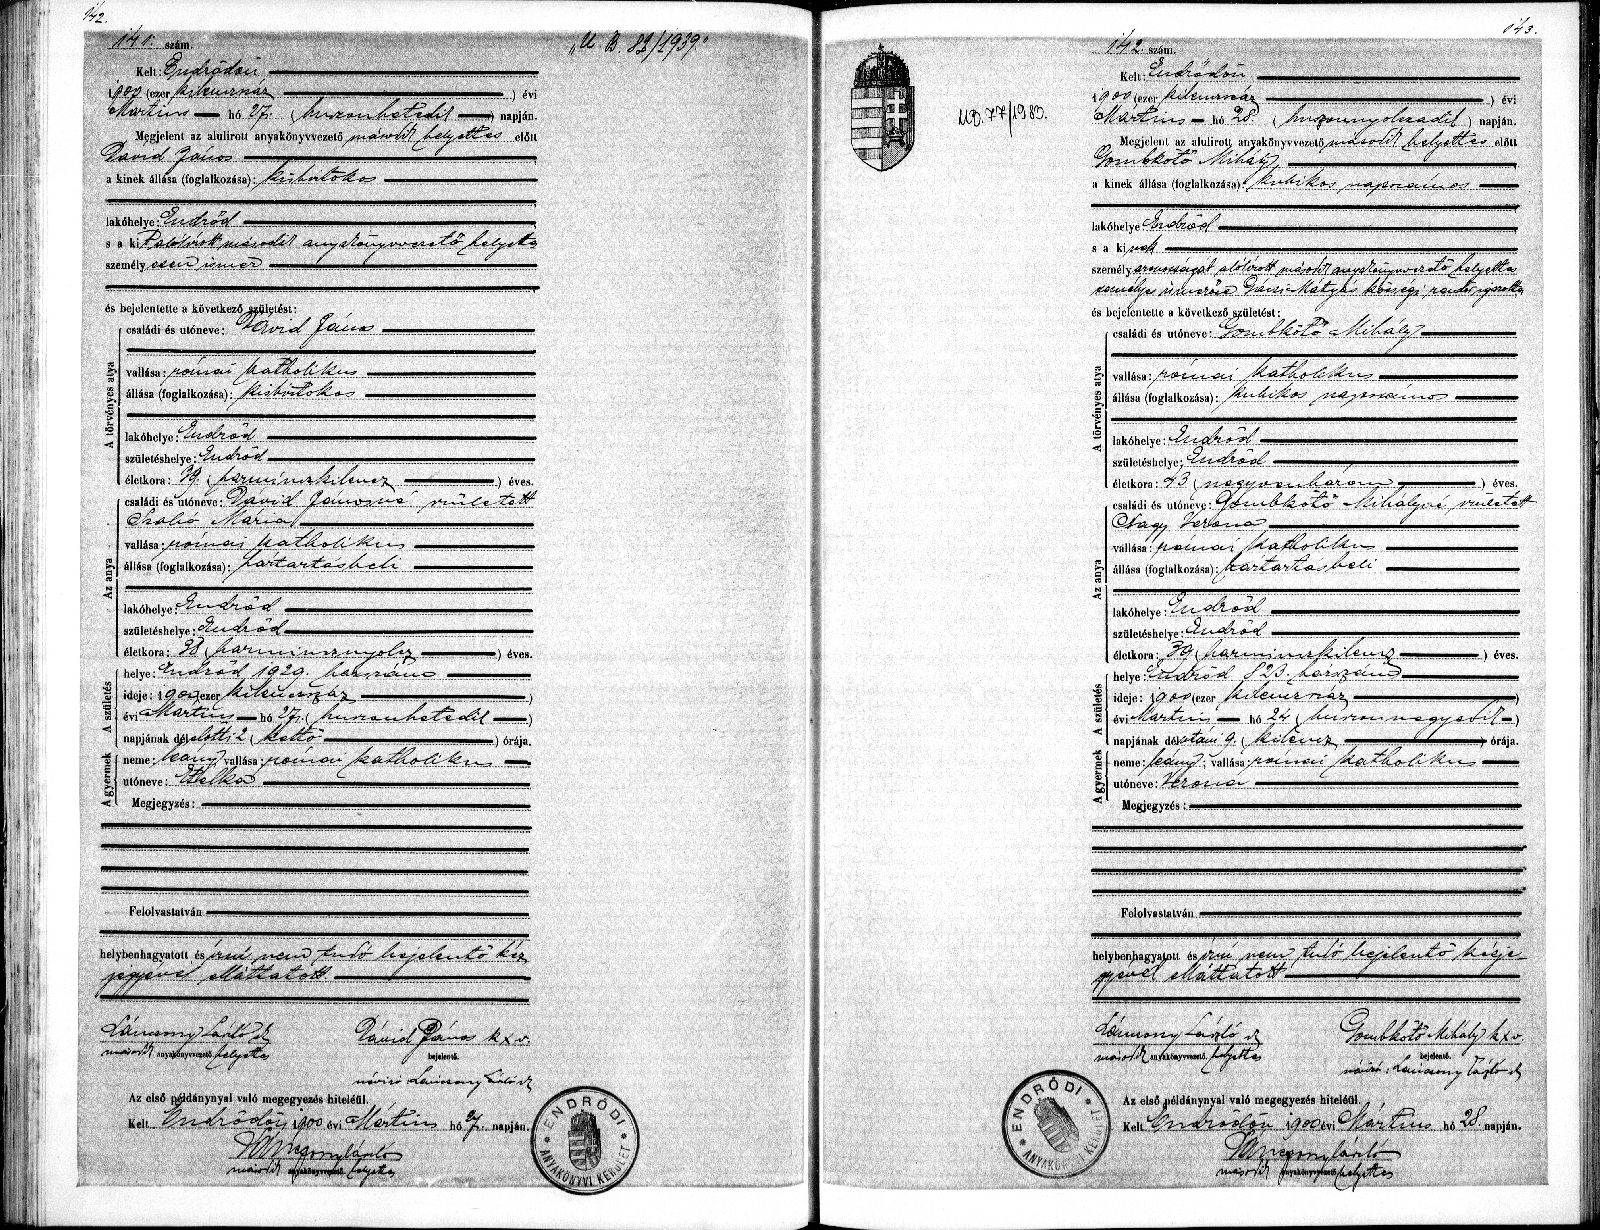 142.
141. szám.
„U. B. 82/1939."
Kelt: Endrődön
1900 (ezer kilencszáz ) évi
Mártius hó 27. (huszonhetedik ) napján.
Megjelent az alulirott anyakönyvvezető második helyettes előtt
Dávid János
a kinek állása (foglalkozása): kisbirtokos
lakóhelye: Endrőd
s a kit alólirott második anyakönyvvezető helyettes
személyesen ismer
és bejelentette a következő születést:
A törvényes atya
családi és utóneve: Dávid János
vallása: római katholikus
állása (foglalkozása): kisbirtokos
lakóhelye: Endrőd
születéshelye: Endrőd
életkora: 39. (harminczkilencz ) éves.
Az anya
családi és utóneve: Dávid Jánosné született
Szabó Mária
vallása: római katholikus
állása (foglalkozása): háztartásbeli
lakóhelye: Endrőd
születéshelye: Endrőd
életkora: 38 (harmincznyolcz ) éves.
A születés
helye: Endrőd 1929. házszám
ideje: 1900 (ezer kilenczszáz )
évi Mártius hó 27. (huszonhetedik )
napjának délelőtti 2 (kettő ) órája.
A gyermek
neme: leány; vallása: római katholikus
utóneve: Etelka
Megjegyzés:
Felolvastatván
helybenhagyatott és írni nem tudó bejelentő kéz
jegyével elláttatott
második anyakönyvvezető helyettes
Dávid János k x v.
bejelentő.
Az első példánynyal való megegyezés hiteléül.
Kelt Endrődön 1900 évi Mártius hó 27. napján.
második anyakönyvvezető helyettes
ENDRŐDI ANYAKÖNYVI KERÜLET
143.
142. szám.
UB. 77/1983.
Kelt: Endrődön
1900 (ezer kilencszáz ) évi
Mártius hó 28. (huszonnyolczadik ) napján.
Megjelent az alulirott anyakönyvvezető második helyettes előtt
Gombkötő Mihály
a kinek állása (foglalkozása): kubikos napszámos
lakóhelye: Endrőd
s a kinek
személyazonosságát alólirott második anyakönyvvezető helyettes
személyes ismerőse Mátyás községi rendőr igazolta
és bejelentette a következő születést:
A törvényes atya
családi és utóneve: Gombkötő Mihály
vallása: római katholikus
állása (foglalkozása): kubikos napszámos
lakóhelye: Endrőd
születéshelye: Endrőd
életkora: 43 (negyvenhárom ) éves.
Az anya
családi és utóneve: Gombkötő Mihályné született
Nagy Verona
vallása: római katholikus
állása (foglalkozása): háztartásbeli
lakóhelye: Endrőd
születéshelye: Endrőd
életkora: 39 (harminczkilencz ) éves.
A születés
helye: Endrőd 523. házszám
ideje: 1900 (ezer kilenczszáz )
évi Mártius hó 24 (huszonnegyedik )
napjának délutáni 9. (kilencz ) órája.
A gyermek
neme: leány; vallása: római katholikus
utóneve: Verona
Megjegyzés:
Felolvastatván
helybenhagyatott és írni nem tudó bejelentő kézje
gyével elláttatott
második anyakönyvvezető helyettes
Gombkötő Mihály k x v.
bejelentő.
Az első példánynyal való megegyezés hiteléül.
Kelt Endrődön 1900 évi Mártius hó 28. napján.
második anyakönyvvezető helyettes
ENDRŐDI ANYAKÖNYVI KERÜLET